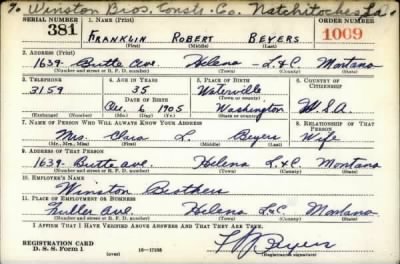 To Winston Bros. Const. Co. Natchitoches La.
SERIAL NUMBER 1. NAME (Print) ORDER NUMBER
381 FRANKLIN ROBERT BEYERS 1009
(First) (Middle) (Last)
2. ADDRESS (Print)
1639 Butte Ave. Helena L&C Montana
(Number and street or R. F. D. number) (Town) (County) (State)
3. TELEPHONE 4. AGE IN YEARS 5. PLACE OF BIRTH 6. COUNTRY OF CITIZENSHIP
3159 35 Waterville
DATE OF BIRTH (Town or county)
Dec. 6, 1905 Washington U.S.A.
(Exchange) (Number) (Mo.) (Day) (Yr.) (State or country)
7. NAME OF PERSON WHO WILL ALWAYS KNOW YOUR ADDRESS 8. RELATIONSHIP OF THAT PERSON
Mrs. Clara L. Beyers Wife
(Mr., Mrs., Miss) (First) (Middle) (Last)
9. ADDRESS OF THAT PERSON
1639 Butte Ave. Helena L&C Montana
(Number and street or R. F. D. number) (Town) (County) (State)
10. EMPLOYER'S NAME
Winston Brothers
11. PLACE OF EMPLOYMENT OR BUSINESS
Fuller Ave. Helena L&C Montana
(Number and street or R. F. D. number) (Town) (County) (State)
I AFFIRM THAT I HAVE VERIFIED ABOVE ANSWERS AND THAT THEY ARE TRUE.
REGISTRATION CARD
D. S. S. Form 1 (over) 16-17105 Beyers